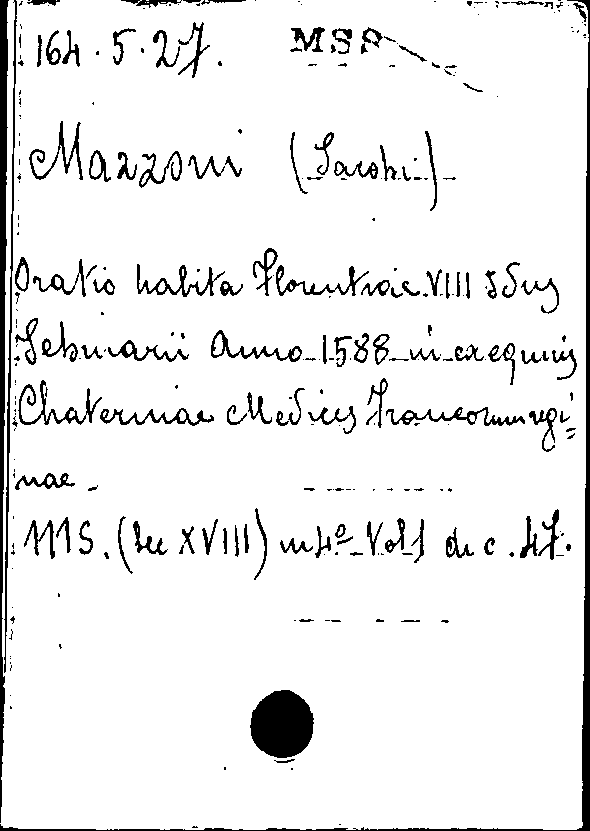 164.5.27. MSS
Mazzoni (Jacobi)
Oratio habita Florentiae VIII Idus
Februarii Anno 1588 in exequiis
Chaterinae Medices Francorum regi=
nae.
MS. (Sec XVIII) in 4º Vol 1 di c. 47.